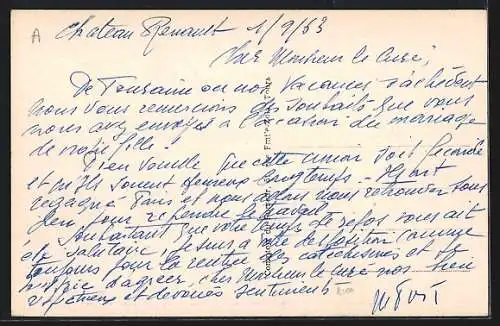 A
Chateau Renault 1/9/63
Cher Monsieur le Curé,
De Touraine où nos vacances s'achèvent
nous vous remercions des souhaits que vous
nous avez envoyés à l'occasion du mariage
de notre fille.
Dieu veuille que cette union soit féconde
et qu'ils soient heureux longtemps.
regagné Paris et nous allons nous retrouver sous
peu pour reprendre le travail.
Souhaitant que votre temps de repos vous ait
été salutaire, je suis à votre disposition comme
toujours pour la rentrée des catéchismes et je
vous prie d'agréer, cher Monsieur le Curé nos bien
respectueux et dévoués sentiments